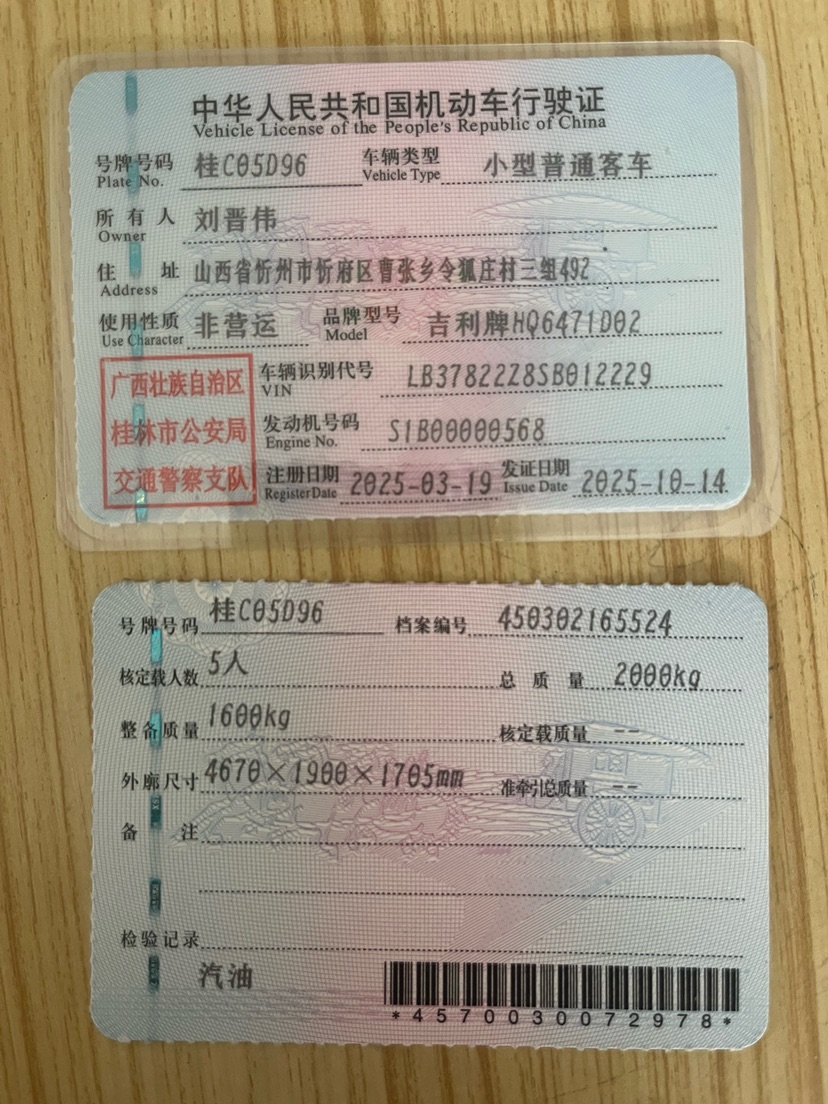 中华人民共和国机动车行驶证
Vehicle License of the People's Republic of China
号牌号码 桂C05D96 车辆类型 小型普通客车
Plate No. Vehicle Type
所有人 刘晋伟
Owner
住址 山西省忻州市忻府区曹张乡令狐庄村三组492
Address
使用性质 非营运 品牌型号 吉利牌HQ6471D02
Use Character Model
广西壮族自治区
桂林市公安局
交通警察支队
车辆识别代号 LB37822Z8SB012229
VIN
发动机号码 S1B00000568
Engine No.
注册日期 2025-03-19 发证日期 2025-10-14
Register Date Issue Date
号牌号码 桂C05D96 档案编号 450302165524
核定载人数 5人 总质量 2000kg
整备质量 1600kg 核定载质量 --
外廓尺寸 4670×1900×1705mm 准牵引总质量 --
备注
检验记录
汽油
*4570030072978*